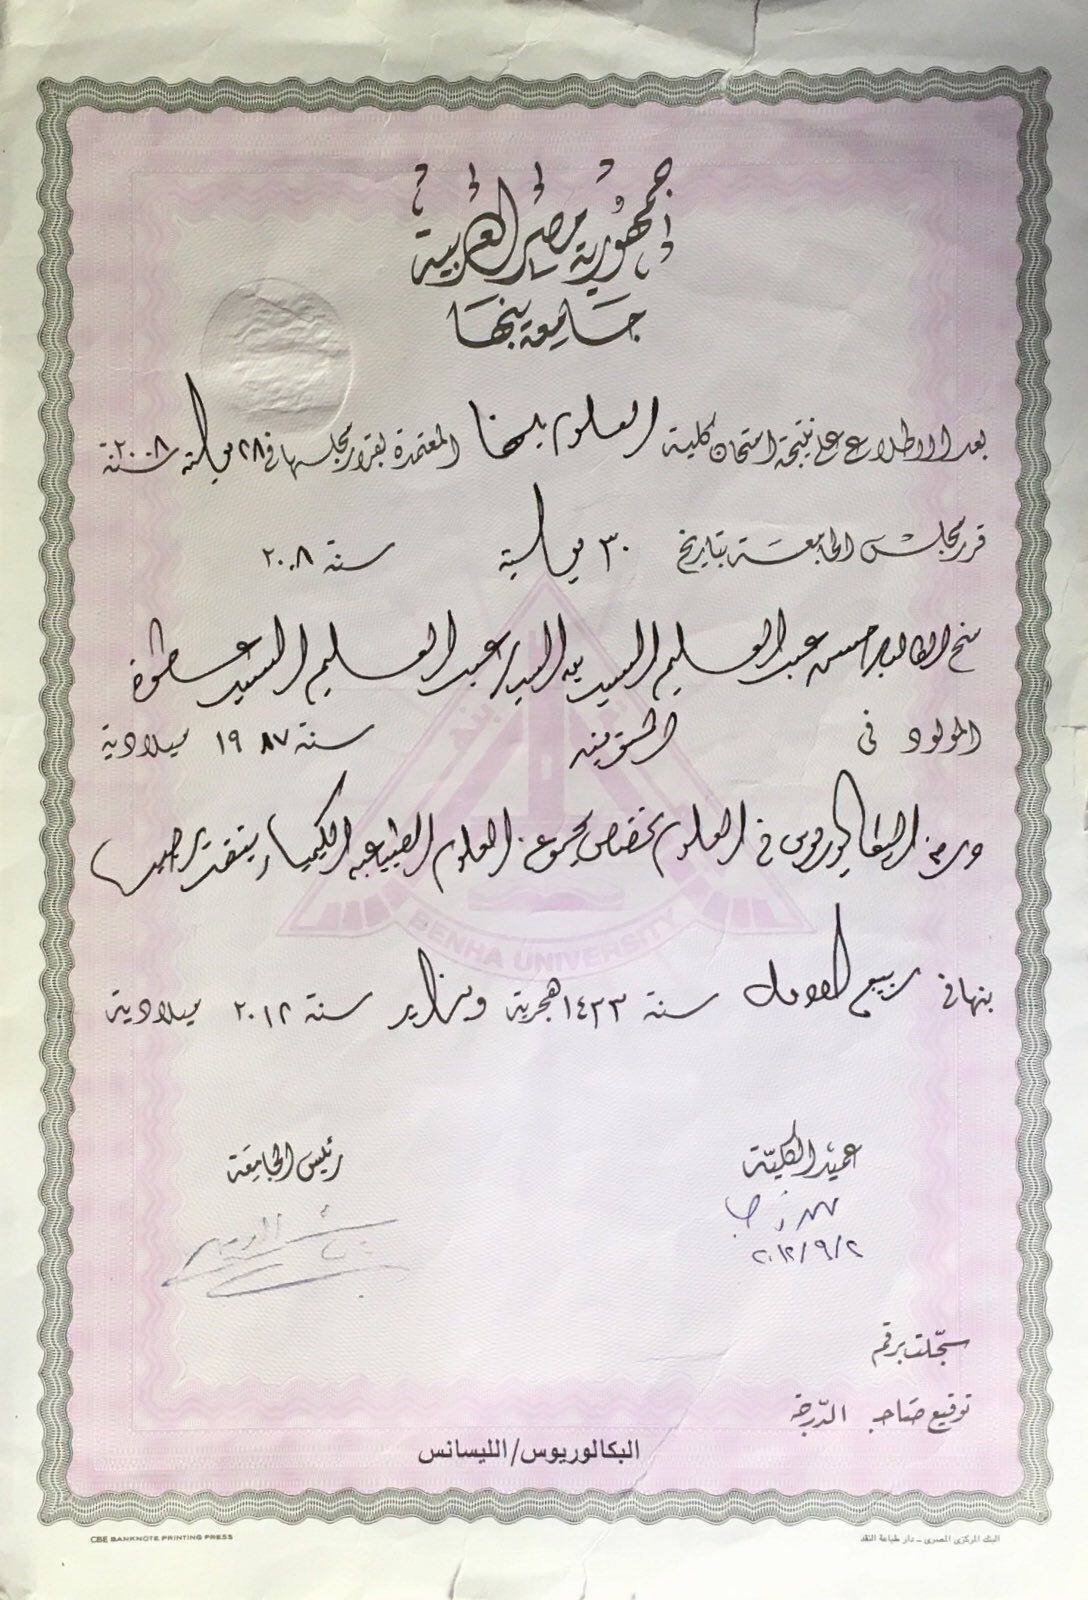 جمهورية مصر العربية
جامعة بنها
بعد الاطلاع على نتيجة امتحان كلية العلوم ببنها المعتمدة بقرار مجلسها فى ٢٨ يوليه سنة ٢٠٠٨
قرر مجلس الجامعة بتاريخ ٣٠ يولية سنة ٢٠٠٨
منح الطالب / حسن عبد العليم السيد عبد العليم السيد
المولود فى سنة ١٩٨٧ ميلادية
درجة البكالوريوس فى العلوم تخصص مجموعة العلوم الطبيعية الكيمياء بتقدير
بنها فى ربيع الاول سنة ١٤٣٣ هجرية سنة ٢٠١٢ ميلادية
عميد الكلية
رئيس الجامعة
٢٠١٢/٩/٢
سجلت برقم
توقيع صاحب الدرجة
البكالوريوس/الليسانس
CBE BANKNOTE PRINTING PRESS
البنك المركزى المصرى - دار طباعة النقد
BENHA UNIVERSITY